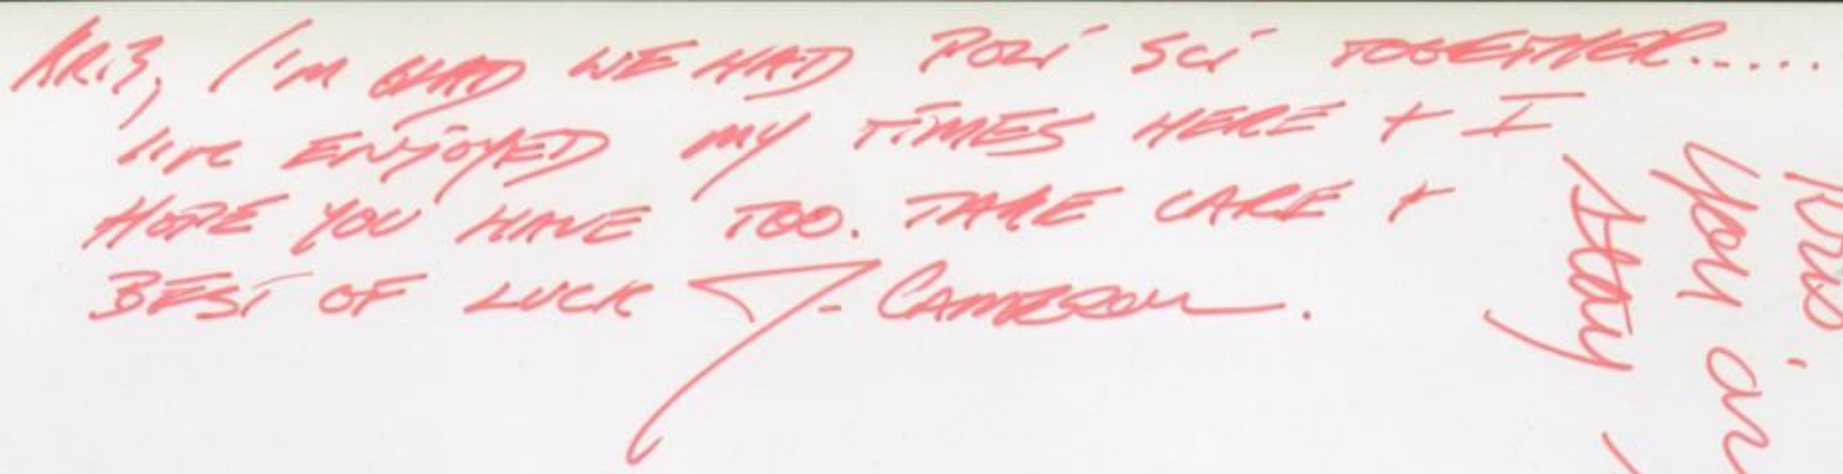 KRIS, I'M GLAD WE HAD POLI SCI TOGETHER.....
I'VE ENJOYED MY TIMES HERE + I
HOPE YOU HAVE TOO. TAKE CARE +
BEST OF LUCK J. CAMERON.
Kris
you ar
stay